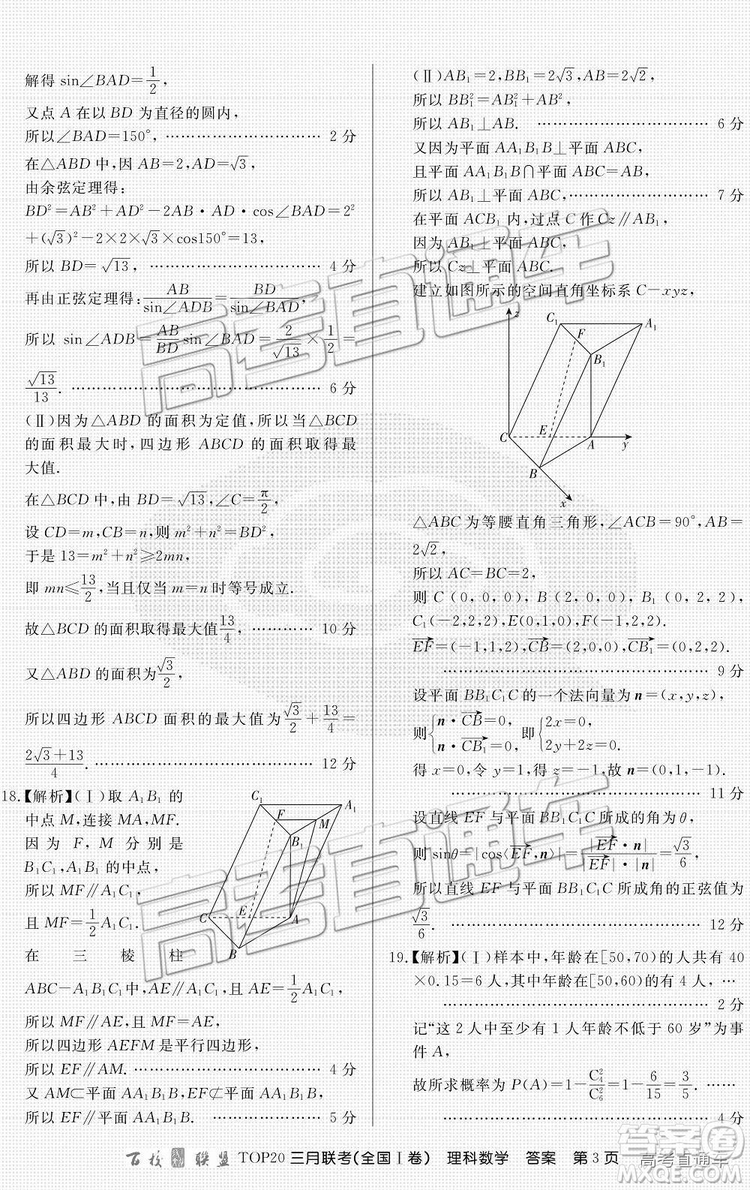 解得 sin∠BAD=1/2,
又点 A 在以 BD 为直径的圆内,
所以∠BAD=150°, ……………………… 2 分
在△ABD 中,因 AB=2,AD=√3,
由余弦定理得:
BD²=AB²+AD²-2AB·AD·cos∠BAD=2²
+(√3)²-2×2×√3×cos150°=13,
所以 BD=√13, ……………………… 4 分
再由正弦定理得:AB/sin∠ADB=BD/sin∠BAD,
所以 sin∠ADB=AB/BD sin∠BAD=2/√13×1/2=
√13/13. ……………………… 6 分
(Ⅱ)因为△ABD 的面积为定值,所以当△BCD
的面积最大时,四边形 ABCD 的面积取得最
大值.
在△BCD 中,由 BD=√13,∠C=π/2,
设 CD=m,CB=n,则 m²+n²=BD²,
于是 13=m²+n²≥2mn,
即 mn≤13/2,当且仅当 m=n 时等号成立.
故△BCD 的面积取得最大值13/4, ………… 10 分
又△ABD 的面积为√3/2,
所以四边形 ABCD 面积的最大值为√3/2+13/4=
(2√3+13)/4. ……………………… 12 分
18.【解析】(Ⅰ)取 A₁B₁ 的
中点 M,连接 MA,MF.
因为 F,M 分别是
B₁C₁,A₁B₁ 的中点,
所以 MF∥A₁C₁,
且 MF=1/2A₁C₁.
在三棱柱
ABC-A₁B₁C₁中,AE∥A₁C₁,且 AE=1/2A₁C₁,
所以 MF∥AE,且 MF=AE,
所以四边形 AEFM 是平行四边形,
所以 EF∥AM. ……………………… 4 分
又 AM⊂平面 AA₁B₁B,EF⊄平面 AA₁B₁B,
所以 EF∥平面 AA₁B₁B. ……………… 5 分
C₁ A₁ F M B₁ C E A B
(Ⅱ)AB₁=2,BB₁=2√3,AB=2√2,
所以 BB₁²=AB₁²+AB²,
所以 AB₁⊥AB. ……………………… 6 分
又因为平面 AA₁B₁B⊥平面 ABC,
且平面 AA₁B₁B∩平面 ABC=AB,
所以 AB₁⊥平面 ABC, ……………… 7 分
在平面 ACB₁ 内,过点 C 作 Cz∥AB₁,
因为 AB₁⊥平面 ABC,
所以 Cz⊥平面 ABC,
建立如图所示的空间直角坐标系 C-xyz,
z C₁ A₁ F B₁ C E A y B x
△ABC 为等腰直角三角形,∠ACB=90°,AB=
2√2,
所以 AC=BC=2,
则 C (0,0,0), B (2,0,0), B₁ (0,2,2),
C₁(-2,2,2),E(0,1,0),F(-1,2,2),
EF=(-1,1,2),CB=(2,0,0),CB₁=(0,2,2),
……………………… 9 分
设平面 BB₁C₁C 的一个法向量为 n=(x,y,z),
则{n·CB=0, n·CB₁=0, 即{2x=0, 2y+2z=0.
得 x=0,令 y=1,得 z=-1,故 n=(0,1,-1),
……………………… 11 分
设直线 EF 与平面 BB₁C₁C 所成的角为 θ,
则 sinθ=|cos⟨EF,n⟩|=|EF·n|/|EF||n|=√3/6,
所以直线 EF 与平面 BB₁C₁C 所成角的正弦值为
√3/6. ……………………… 12 分
19.【解析】(Ⅰ)样本中,年龄在[50,70)的人共有 40
×0.15=6 人,其中年龄在[50,60)的有 4 人, ……
……………………… 2 分
记“这 2 人中至少有 1 人年龄不低于 60 岁”为事
件 A,
故所求概率为 P(A)=1-C₄²/C₆²=1-6/15=3/5. ……
……………………… 4 分
百校联盟 TOP20 三月联考(全国Ⅰ卷) 理科数学 答案 第 3 页
高考直通车
高考直通车
高考直通车
答案圈